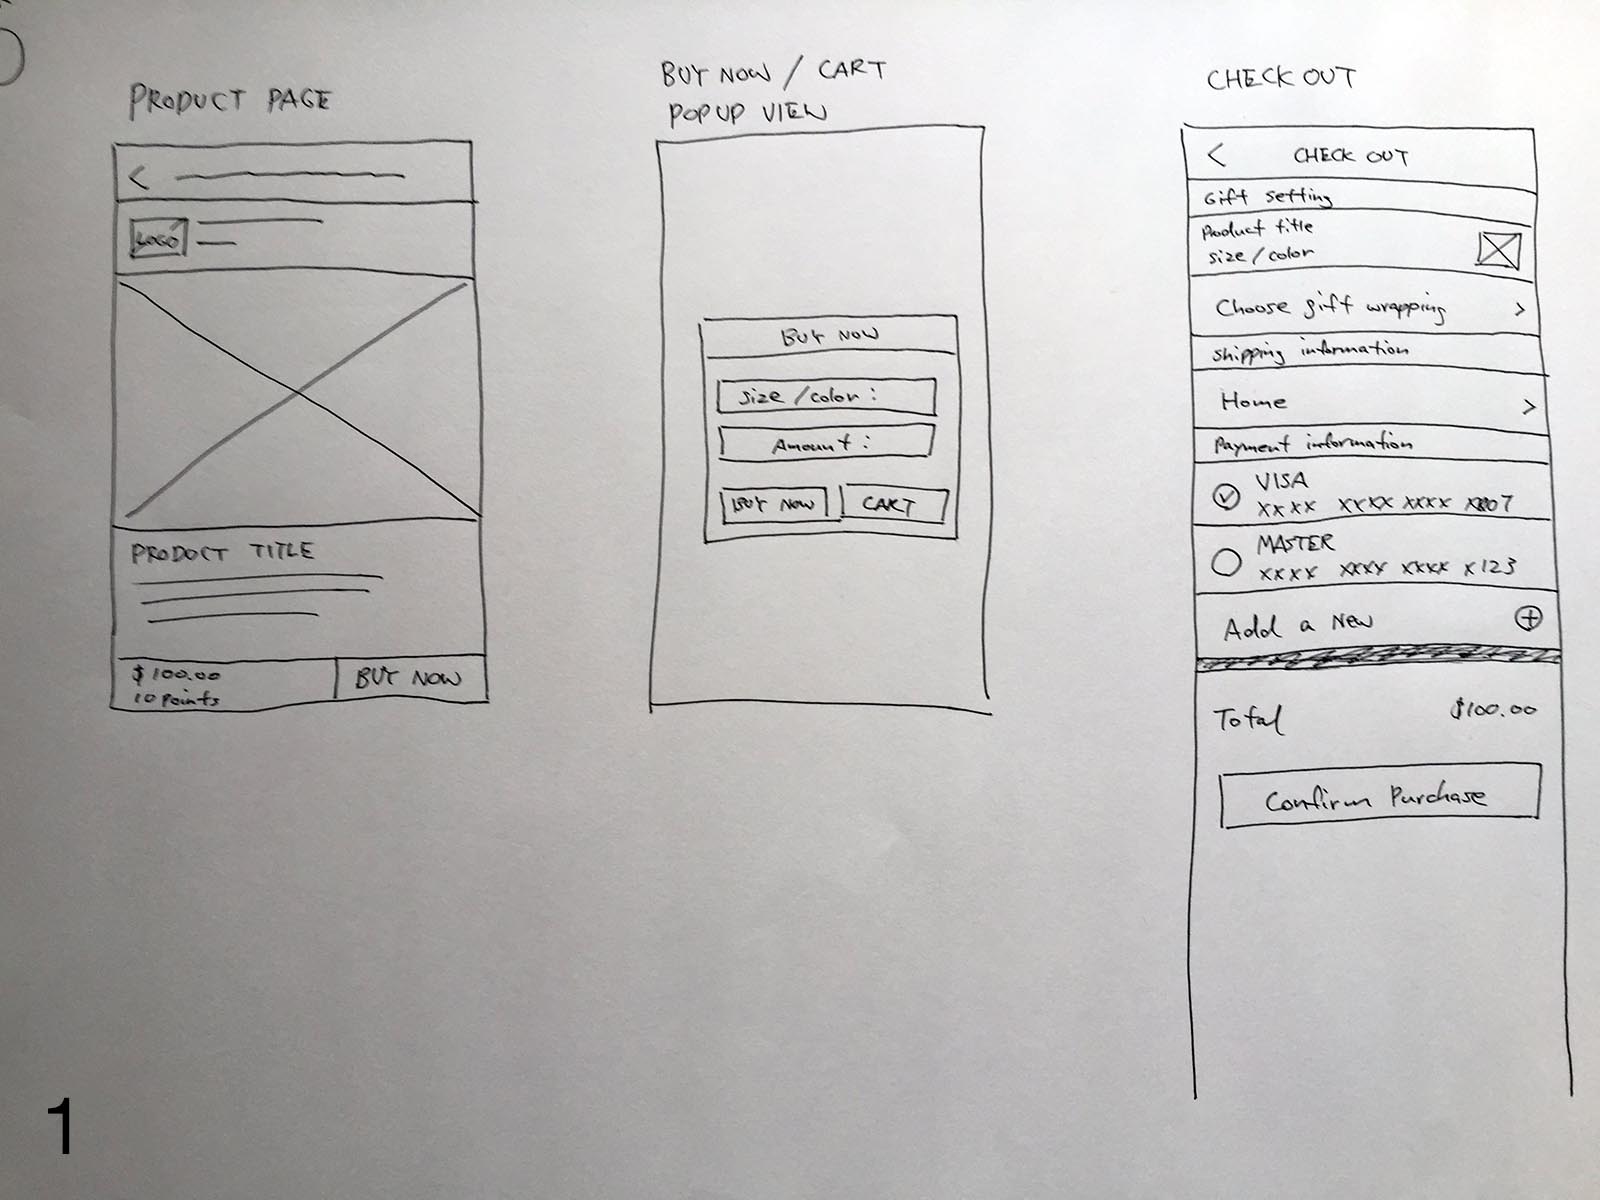 PRODUCT PAGE
<
LOGO
PRODOCT TITLE
$100.00
10 points
BUY NOW
BUY NOW / CART
POPUP VIEW
BUY NOW
Size/color:
Amount:
BUY NOW
CART
CHECK OUT
< CHECK OUT
Gift setting
Product title
size/color
Choose gift wrapping >
Shipping information
Home >
Payment information
VISA
xxxx xxxx xxxx x807
MASTER
xxxx xxxx xxxx x123
Add a New +
Total $100.00
Confirm Purchase
1